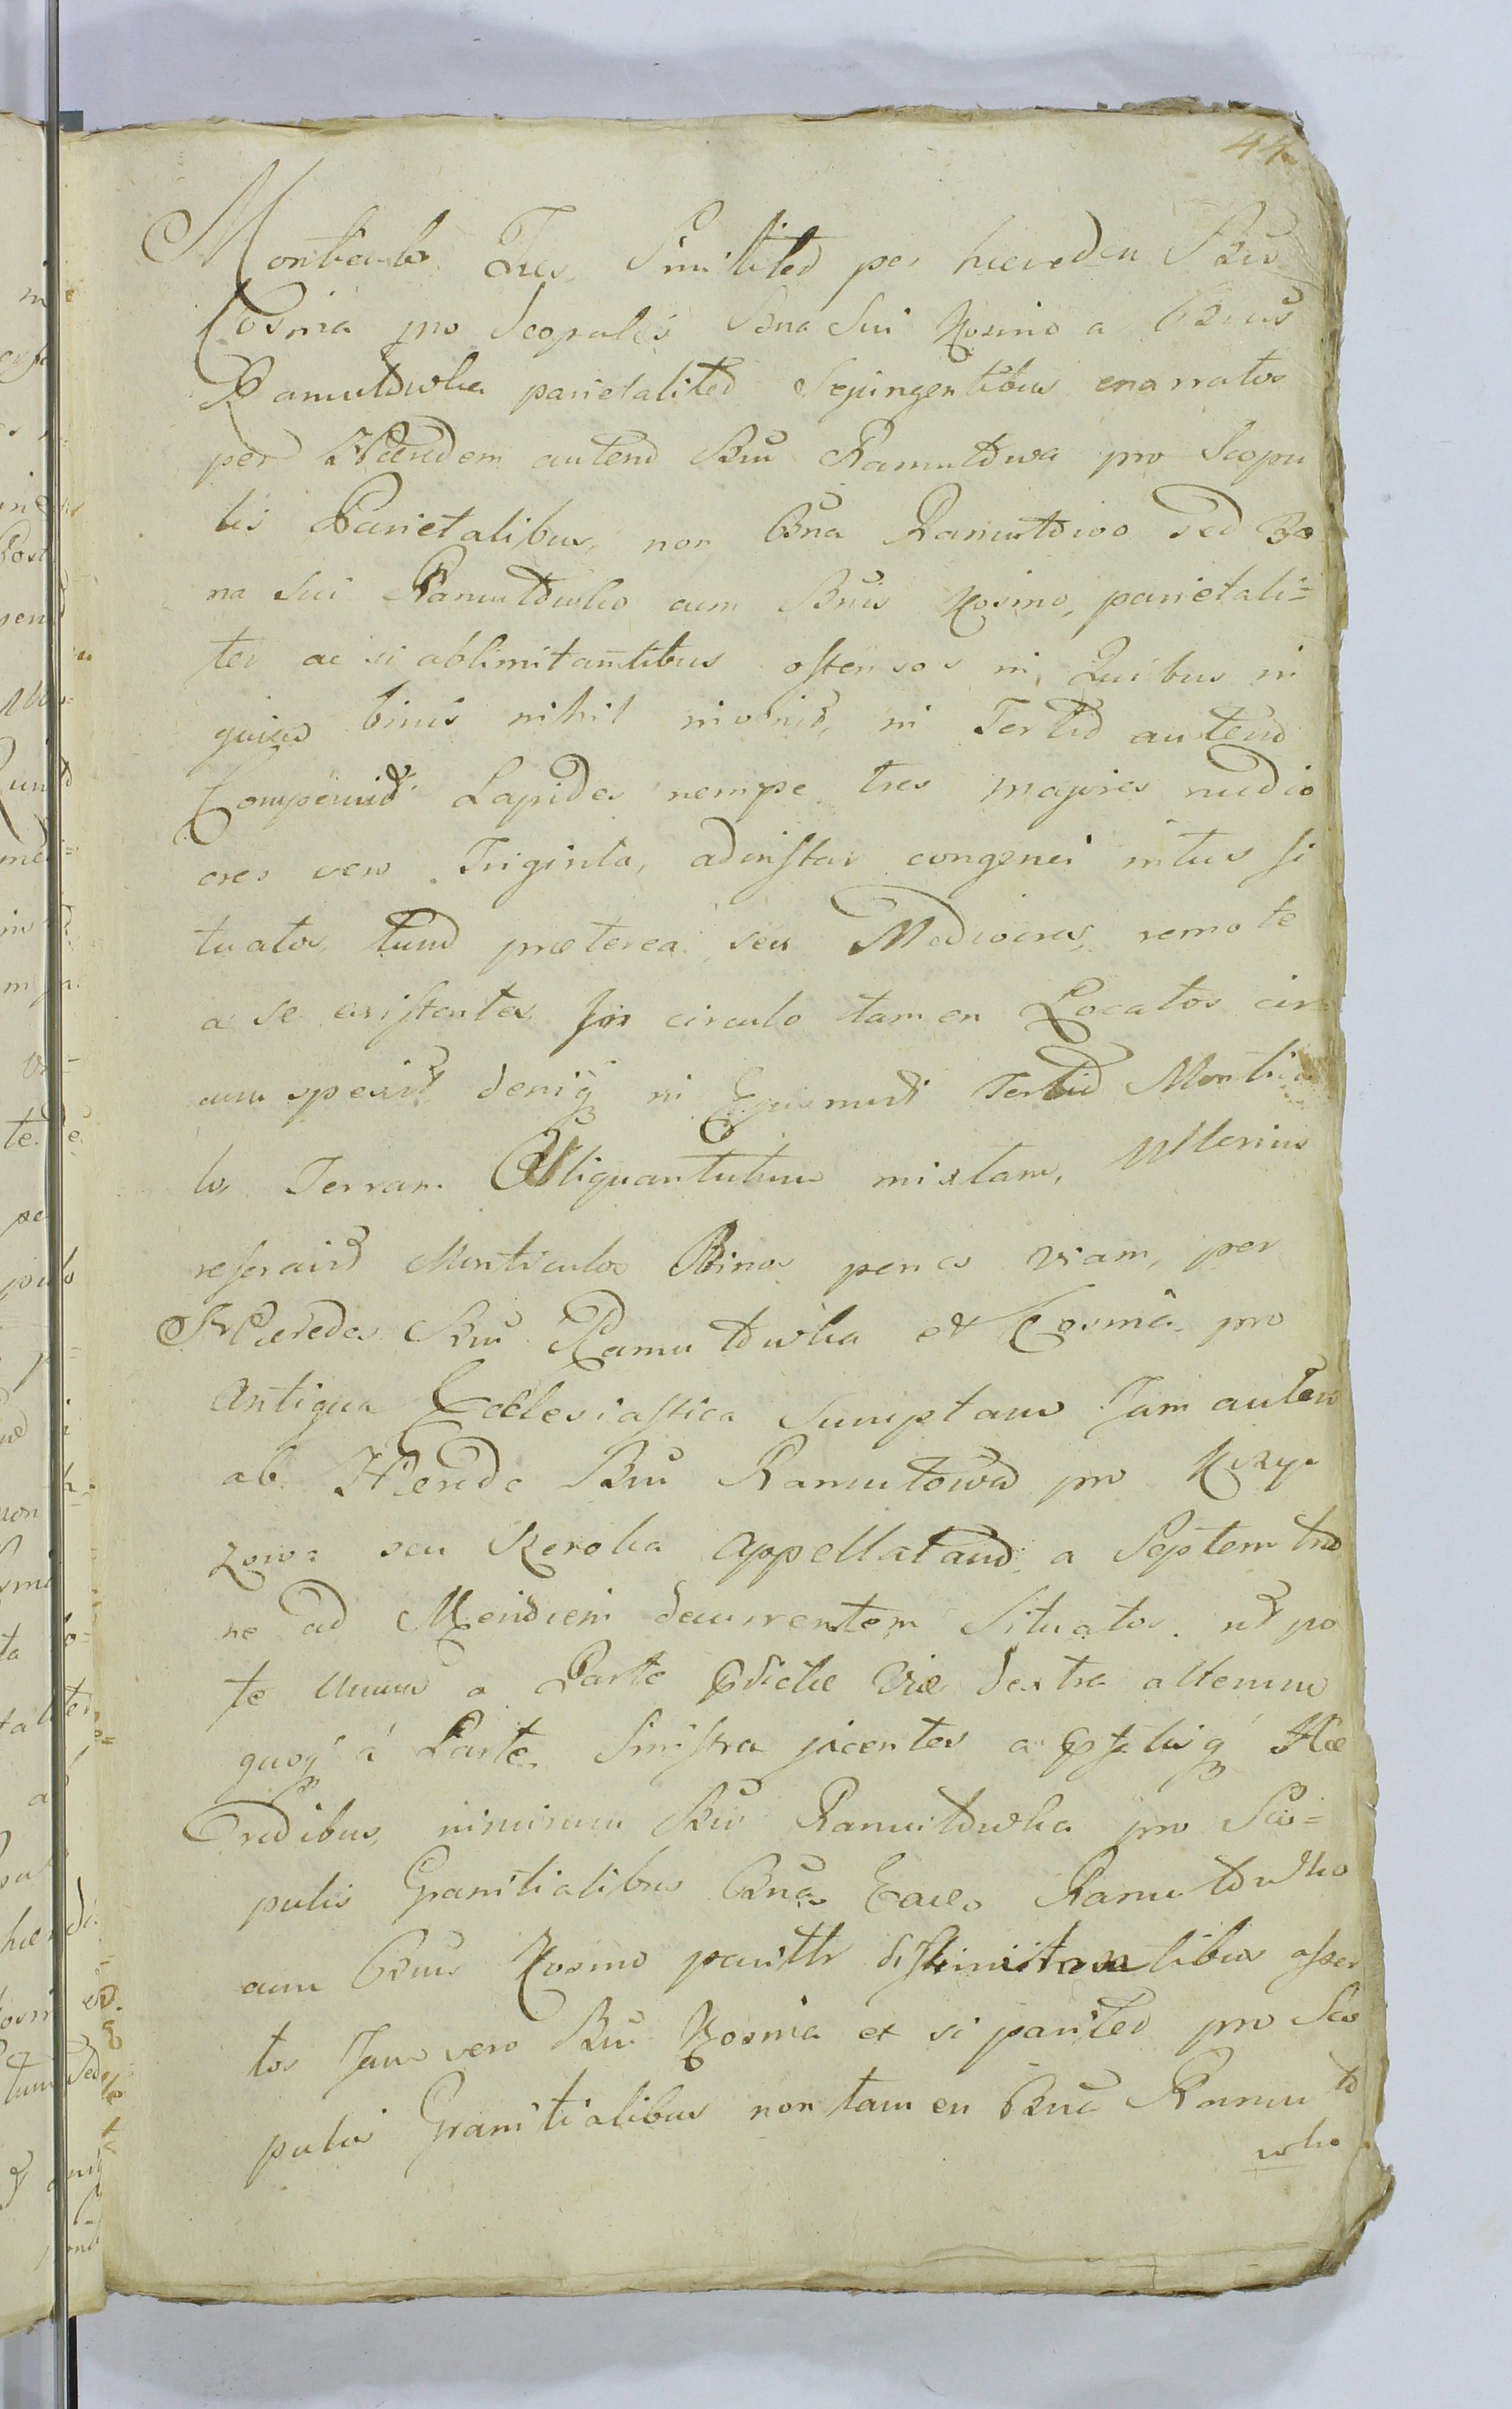 44
Monticulos Tres Similiter per hæredem Bnū
Cosmia pro Scopulis Bna Sui Kosmo a Bnis
Ramutowka parietaliter Sejungentibus enarratos
per Hæredem autem Bnū Ramutowa pro Scopu
lis Parietalibus, non Bna Ramutowo sed Bo
na Sui Ramutowko cum Bnis Kosmo, parietali=
ter ac si ablimitantibus ostensos in Quibus in
quiis binis nihil invenit, in Tertio autem
Comperuit Lapides nempe tres majores medio
cres vero Triginta, adinstar congenei intus si
tuatos, tum præterea seu Mediocres remote
a se existentes in circulo tamen Locatos cir
cumspexit deniq in Ejusmodi Tertio Monticu
lo, Terram Aliquantulum mixtam, Ulterius
reseravit Monticulos Binos penes viam, per
Hæredes Bnū Ramutowka et Cosmia pro
Antiqua Ecclesiastica Sumptam Jam autem
ab Hærede Bnū Ramutowa pro Krzy
zowa seu Szeroka Appellatam a Septemtrio
ne ad Meridiem decurrentem Situatos. utpo
te Unum a Parte Pdictæ Viæ dextra alterum
quoq a Parte Sinistra jacentes a Pfatisq Hæ
redibus, nimirum Bnū Ramutowka pro Sco=
pulis Granitialibus Bna Eadē Ramutowko
cum Bnis Kosmo parittr distimitantibus asser
tos Jam vero Bnū Kosmia et si pariter pro Sco
pulis Granitialibus non tamen Bna Ramuto
wko